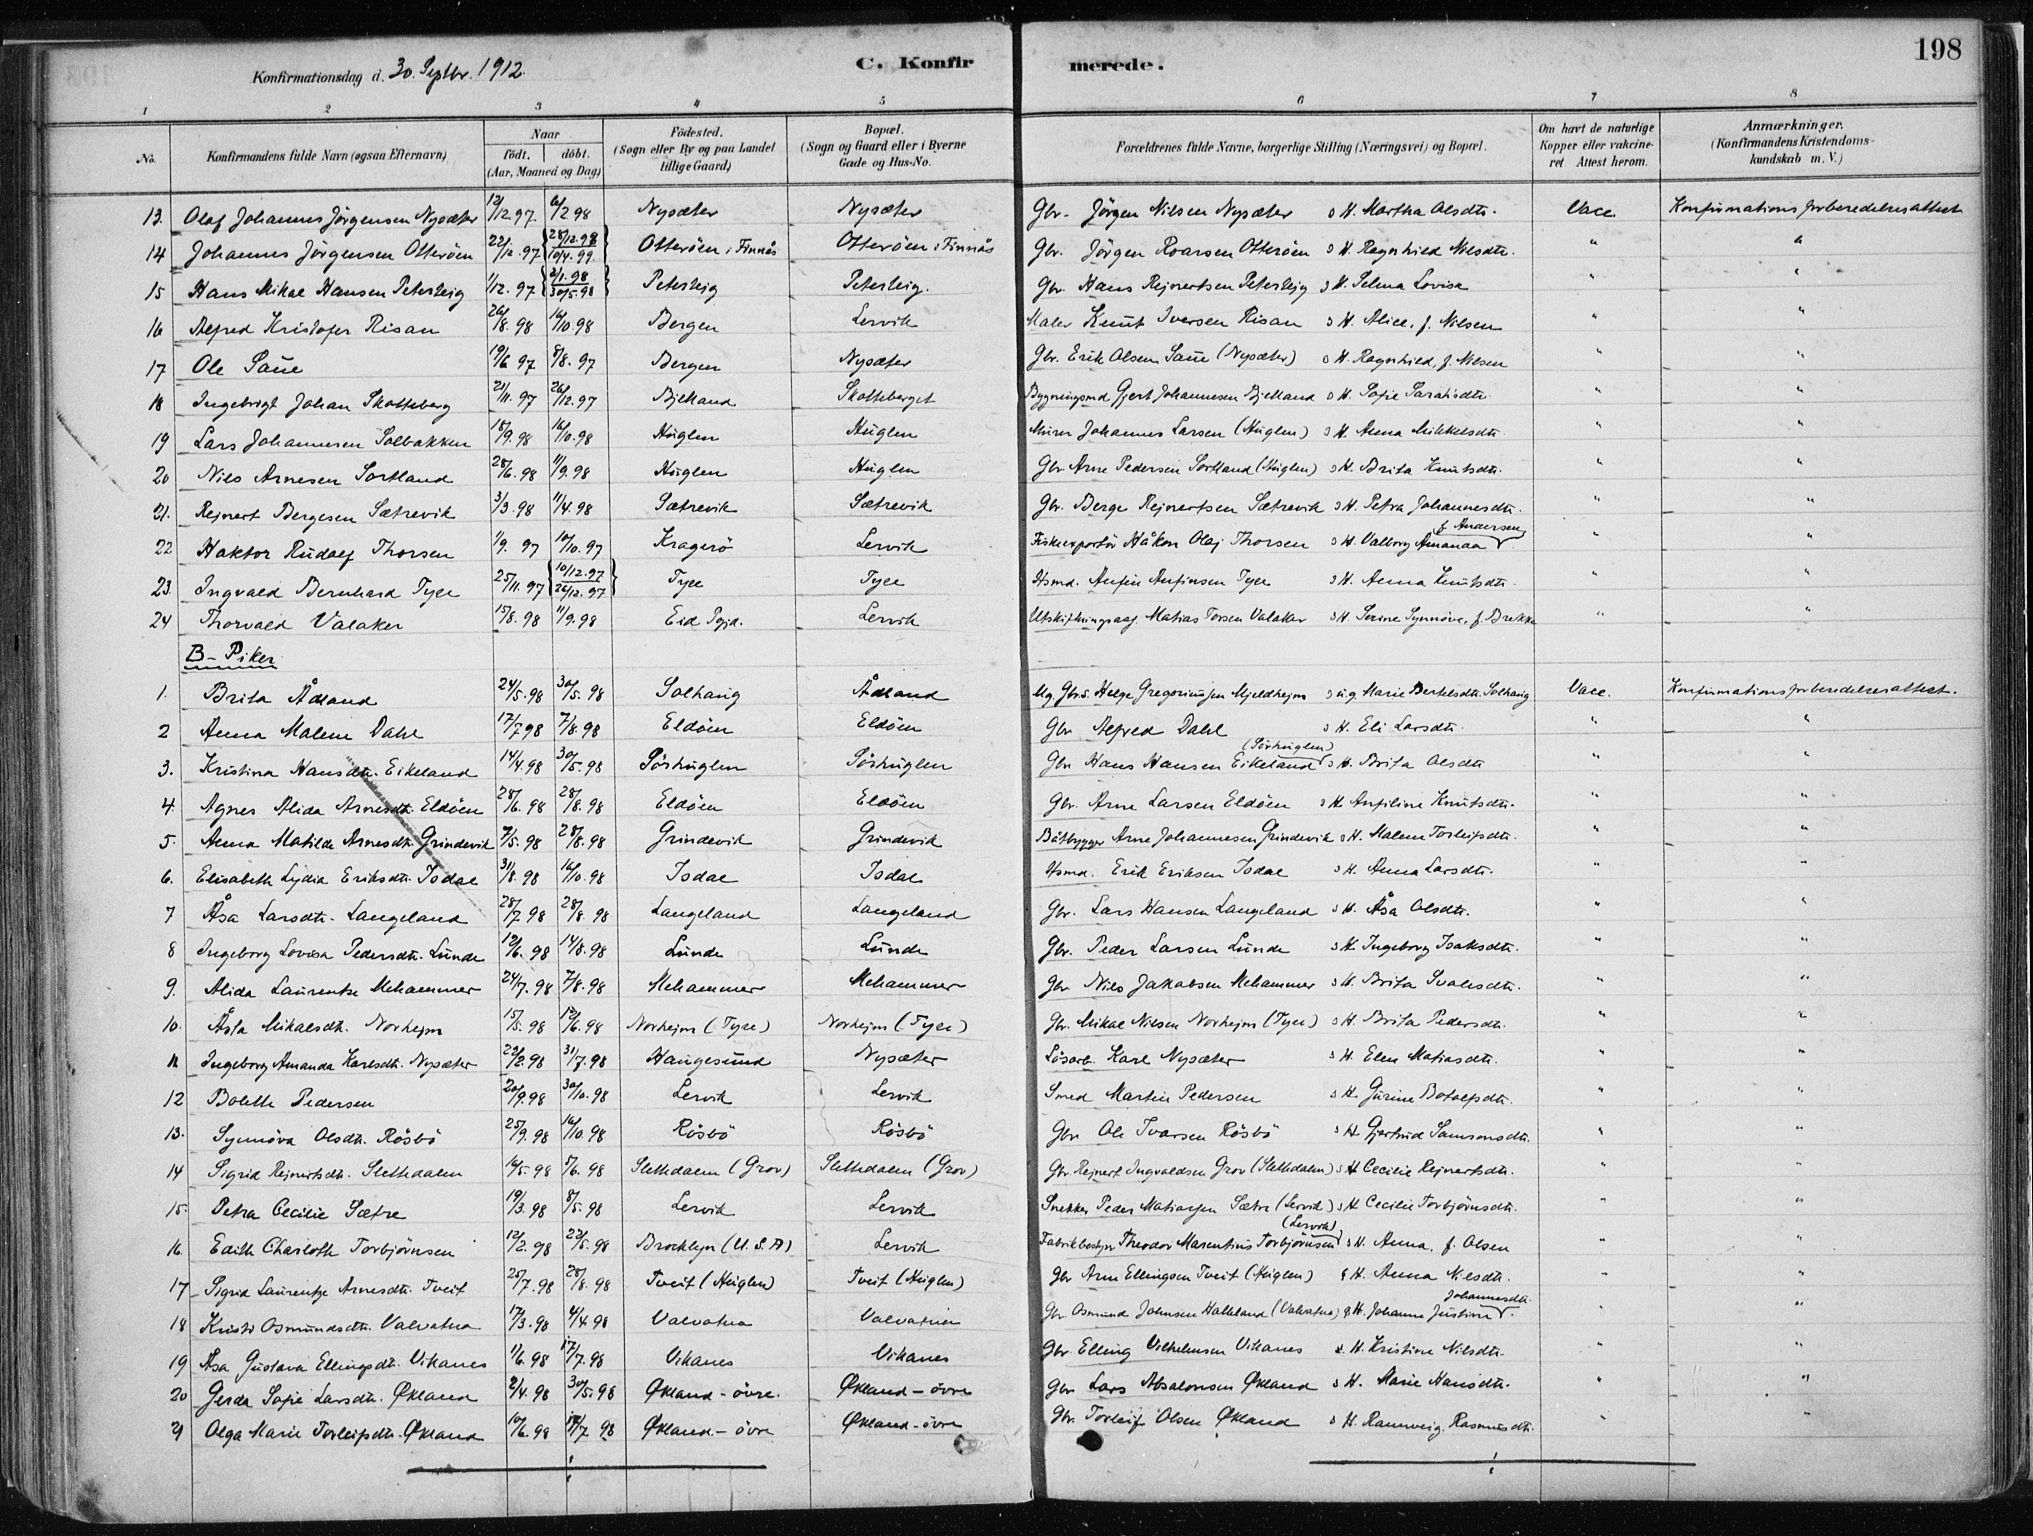 198
Konfirmationsdag d. 30. Septbr. 1912. C. Konfirmerede.
1 2 3 4 5 6 7 8
No. Konfirmandens fulde Navn (ogsaa Efternavn) Naar født. døbt. (Aar, Maaned og Dag) Födested. (Sogn eller By og paa Landet tillige Gaard) Bopæl. (Sogn og Gaard eller i Byerne Gade og Hus-No. Forældrenes fulde Navne, borgerlige Stilling (Næringsvei) og Bopæl. Om havt de naturlige Kopper eller vakcineret Attest herom. Anmærkninger. (Konfirmandens Kristendomskundskab m. V.)
13. Olaf Johannes Jörgensen Nysæter 12/12 97 6/2 98 Nysæter Nysæter Gbr. Jörgen Nilsen Nysæter o H. Martha Olsdtr. Vacc. Konfirmationsforberedelsesattest
14 Johannes Jörgensen Otteröen 22/12. 97 {28/12.98 10/4.99} Otteröen i Finnås Otteröen i Finnås Gbr. Jörgen Roarsen Otteröen o H. Ragnhild Nilsdtr. " "
15 Hans Mikal Hansen Petersteig 1/12. 97 {2/1.98 30/5.98} Petersteig Petersteig. Gbr. Hans Rejnertsen Petersteig o H. Selma Lovise " "
16 Alfred Kristofer Risan 26/8. 98 16/10.98 Bergen Lervik Maler Knut Iversen Risan o H. Alice, f. Nilsen " "
17 Ole Saue 19/6 97 8/8. 97 Bergen Nysæter Gbr. Erik Olsen Saue (Nysæter) o H. Ragnhild, f. Nilsen " "
18 Ingebrigt Johan Skotteberg 21/11. 97 26/12.97 Bjelland Skotteberget Bygningsmd Gjert Johannesen Bjelland o H. Sofie Sarasdtr. " "
19 Lars Johannesen Solbakken 18/9.98 16/10.98 Huglen Huglen Murer Johannes Larsen (Huglen) o H. Anna Mikkelsdtr. " "
20 Nils Arnesen Sortland 28/6. 98 11/9.98 Huglen Huglen Gbr Arne Pedersen Sortland (Huglen) o H. Brita Knutsdtr. " "
21. Rejnert Bergesen Sætrevik 3/3 .98 11/4.98 Sætrevik Sætrevik Gbr. Berge Rejnertsen Sætrevik o H. Petra Johannesdtr. " "
22 Haktor Rudolf Thorsen 1/9. 97 10/10.97 Kragerö Lervik Fiskeexportör Håkon Olaj Thorsen o H. Valborg Amanda f. Andersen " "
23. Ingvald Bernhard Tyse 25/11. 97 {10/12.97 26/12.97} Tyse Tyse Hsmd. Anfin Anfinsen Tyse o H. Anna Knutsdtr. " "
24 Thorvald Valaker 15/8. 98 11/9.98 Eid Lervik Utskiftningsass. Matias Torsen Valaker o H. Serine Synnöve, f. Brekke " "
B- Piker
1. Brita Ådland 24/5.98 30/5. 98 Solhaug Ådland Ug. Gbrs. Helge Gregoriussen Mjeldhejm o u.g. Marie Bertelsdtr. Solhaug Vacc. Konfirmationsforberedelsesattest.
2 Anna Malene Dahl 17/7 98 7/8.98 Eldöen Eldöen Gbr Alfred Dahl o H. Eli Larsdtr. " "
3. Kristina Hansdtr. Eikeland 14/4.98 30/5.98 Sörhuglen Sörhuglen Gbr Hans Hansen Eikeland (Sörhuglen) o H. Brita Olsdtr " "
4 Agnes Alida Arnesdtr. Eldöen 28/6. 98 28/8.98 Eldöen Eldöen Gbr. Arne Larsen Eldöen o H. Anfiline Knutsdtr. " "
5. Anna Matilde Arnesdtr. Grindevik 7/5. 98 28/8.98 Grindevik Grindevik Båtbygger Arne Johannesen Grindevik o H. Malene Torleifsdtr. " "
6. Elisabeth Lydia Eriksdtr. Isdal 31/8. 98 16/10.98 Isdal Isdal Hsmd. Erik Eriksen Isdal o H. Anna Larsdtr. " "
7 Åsa Larsdtr. Langeland 28/7. 98 28/8. 98 Langeland Langeland Gbr. Lars Hansen Langeland o H. Åsa Olsdtr. " "
8 Ingeborg Lovisa Pedersdtr. Lunde 19/6. 98 14/8.98 Lunde Lunde Gbr. Peder Larsen Lunde o H. Ingeborg Isaksdtr. " "
9. Alida Laurentse Mehammer 24/7. 98 7/8.98 Mehammer Mehammer Gbr Nils Jakobsen Mehammer o H. Brita Svalesdtr. " "
10. Åsta Mikalsdtr. Norhejm 15/5. 98 12/6. 98 Norhejm (Tyse) Norhejm (Tyse) Gbr. Mikal Nilsen Norhejm (Tyse) o H. Brita Pedersdtr. " "
11 Ingeborg Amanda Karlsdtr. Nysæter 22/2.98 31/7.98 Haugesund Nysæter Lösarb. Karl Nysæter o H. Elen Matiasdtr. " "
12 Bolette Pedersen 20/9.98 30/10.98 Lervik Lervik Smed Martin Pedersen o H. Gurine Botolfsdtr. " "
13. Synnöva Olsdtr. Rösbö 25/9. 98 16/10.98 Rösbö Rösbö Gbr Ole Ivarsen Rösbö o H Gjertrud Samsonsdtr. " "
14 Sigrid Rejnertsdtr. Slettedalen 10/5. 98 5/6. 98 Slettedalen (Grov) Slettedalen (Grov) Gbr. Rejnert Ingvaldsen Grov (Slettedalen) o H Cecilie Rejnertsdtr. " "
15. Petra Cecilie Sætre 19/3. 98 8/5. 98 Lervik Lervik Snekker Peder Matiassen Sætre (Lervik) o H Cecilie Torbjörnsdtr. " "
16. Edith Charloth Torbjörnsen 12/2. 98 22/5. 98 Brooklyn (U.S.A) Lervik Fabrikbestyr Theodor Marentius Torbjörnsen (Lervik) o H. Anna, f. Olsen " "
17 Sigrid Laurentze Arnesdtr. Tveit 25/7. 98 28/8. 98 Tveit (Huglen) Tveit (Huglen) Gbr Arne Ellingsen Tveit (Huglen) o H. Anna Nilsdtr. " "
18 Kristi Osmundsdtr. Valvatna 17/3. 98 4/4 98 Valvatna Valvatna Gbr. Osmund Johnsen Halleland (Valvatna) o H. Johanne Justine Johannesdtr. " "
19 Åsa Gustava Ellingsdtr. Vikanes 11/6. 98 17/7. 98 Vikanes Vikanes Gbr. Elling Vilhelmsen Vikanes o. H. Kristine Nilsdtr. " "
20 Gerda Sofie Larsdtr. Økland 2/4. 98 30/5.98 Økland - övre. Økland - övre Gbr Lars Absalonsen Økland o H. Marie Hansdtr. " "
21 Olga Marie Torleifsdtr. Økland 10/6. 98 17/7 98 Økland - övre Økland - övre Gbr. Torleif Olsen Økland o H. Rannveig Rasmusdtr. " "